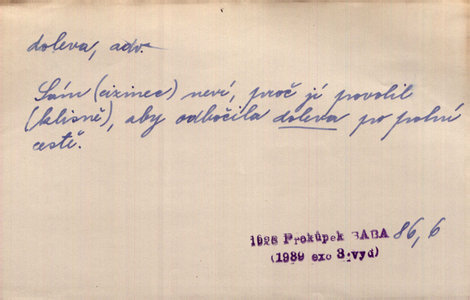 doleva, adv.
Sám (cizinec) neví, proč jí povolil
(klisně), aby odbočila doleva po polní
cestě.
1928 Prokůpek BABA 86,6
(1939 exc 3.vyd)